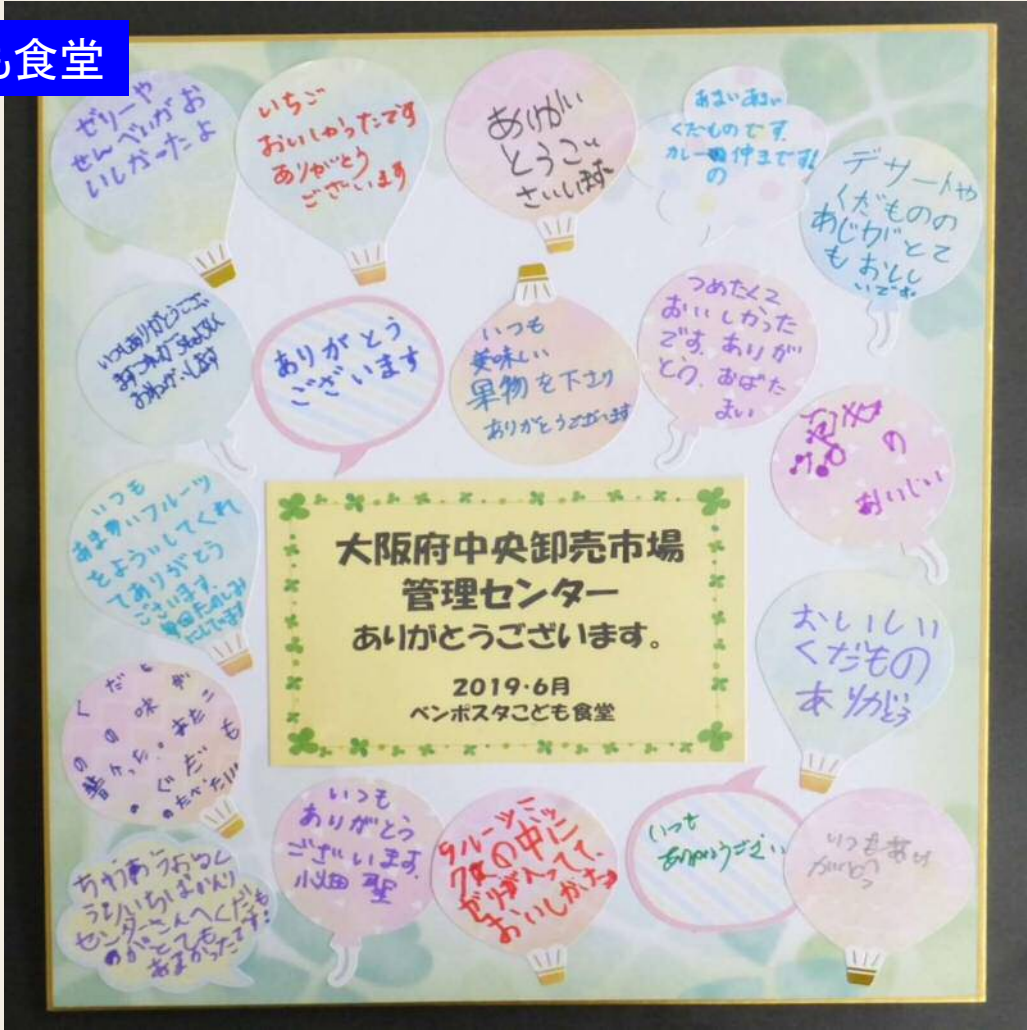 も食堂
ゼリーや
せんべいがお
いしかったよ
いちご
おいしかったです
ありがとう
ございます
ありがい
とうござ
さいします
あまいあまい
くだものです。
カレーの仲まです!
デザートや
くだものの
あじがとて
もおしし
いです。
いつもありがとうござい
ますこれからもよろしく
おねがいします
ありがとう
ございます
いつも
美味しい
果物を下さり
ありがとうございます
つめたくて
おいしかった
です。ありが
とう。おばた
まい
の
おいしい
いつも
あまいフルーツ
をよういしてくれ
てありがとう
ございます。
毎回たのしみ
にしています
大阪府中央卸売市場
管理センター
ありがとうございます。
2019・6月
ベンポスタこども食堂
おいしい
くだもの
ありがとう
くだも
のの味が
いつも
ありがとう
ございます。
小畑 聖
フルーツポンツ
の中に
ゼリーが入ってて、
おいしかった
いつも
ありがとうござい
いつもあり
がとう
ちゅうおうおろし
うりいちばかんり
センターさんへくだも
のがとても
あまかったです!